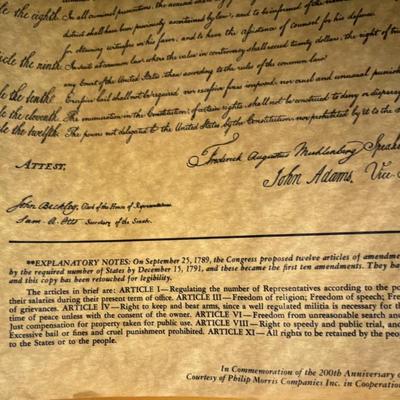 cle the eighth. In all criminal prosecutions, the accused shall
district shall have been previously ascertained by law; and to be informed of the nature
for obtaining witnesses in his favor, and to have the assistance of counsel for his defence.
icle the ninth. In suits at common law, where the value in controversy shall exceed twenty dollars, the right of tri
any Court of the United States, than according to the rules of the common law.
cle the tenth. Excessive bail shall not be required, nor excessive fines imposed, nor cruel and unusual punish
cle the eleventh. The enumeration in the Constitution, of certain rights, shall not be construed to deny or dispara
cle the twelfth. The powers not delegated to the United States by the Constitution, nor prohibited by it to the
ATTEST,
Frederick Augustus Muhlenberg Speake
John Adams, Vice-
John Beckley, Clerk of the House of Representatives.
Sam. A. Otis Secretary of the Senate.
**EXPLANATORY NOTES: On September 25, 1789, the Congress proposed twelve articles of amendme
by the required number of States by December 15, 1791, and these became the first ten amendments. They ha
and this copy has been retouched for legibility.
The articles in brief are: ARTICLE I—Regulating the number of Representatives according to the po
their salaries during their present term of office. ARTICLE III—Freedom of religion; Freedom of speech; Fre
of grievances. ARTICLE IV—Right to keep and bear arms, since a well regulated militia is necessary for th
time of peace unless with the consent of the owner. ARTICLE VI—Freedom from unreasonable search an
Just compensation for property taken for public use. ARTICLE VIII—Right to speedy and public trial, and
Excessive bail or fines and cruel punishment prohibited. ARTICLE XI—All rights to be retained by the peop
to the States or to the people.
In Commemoration of the 200th Anniversary o
Courtesy of Philip Morris Companies Inc. in Cooperation